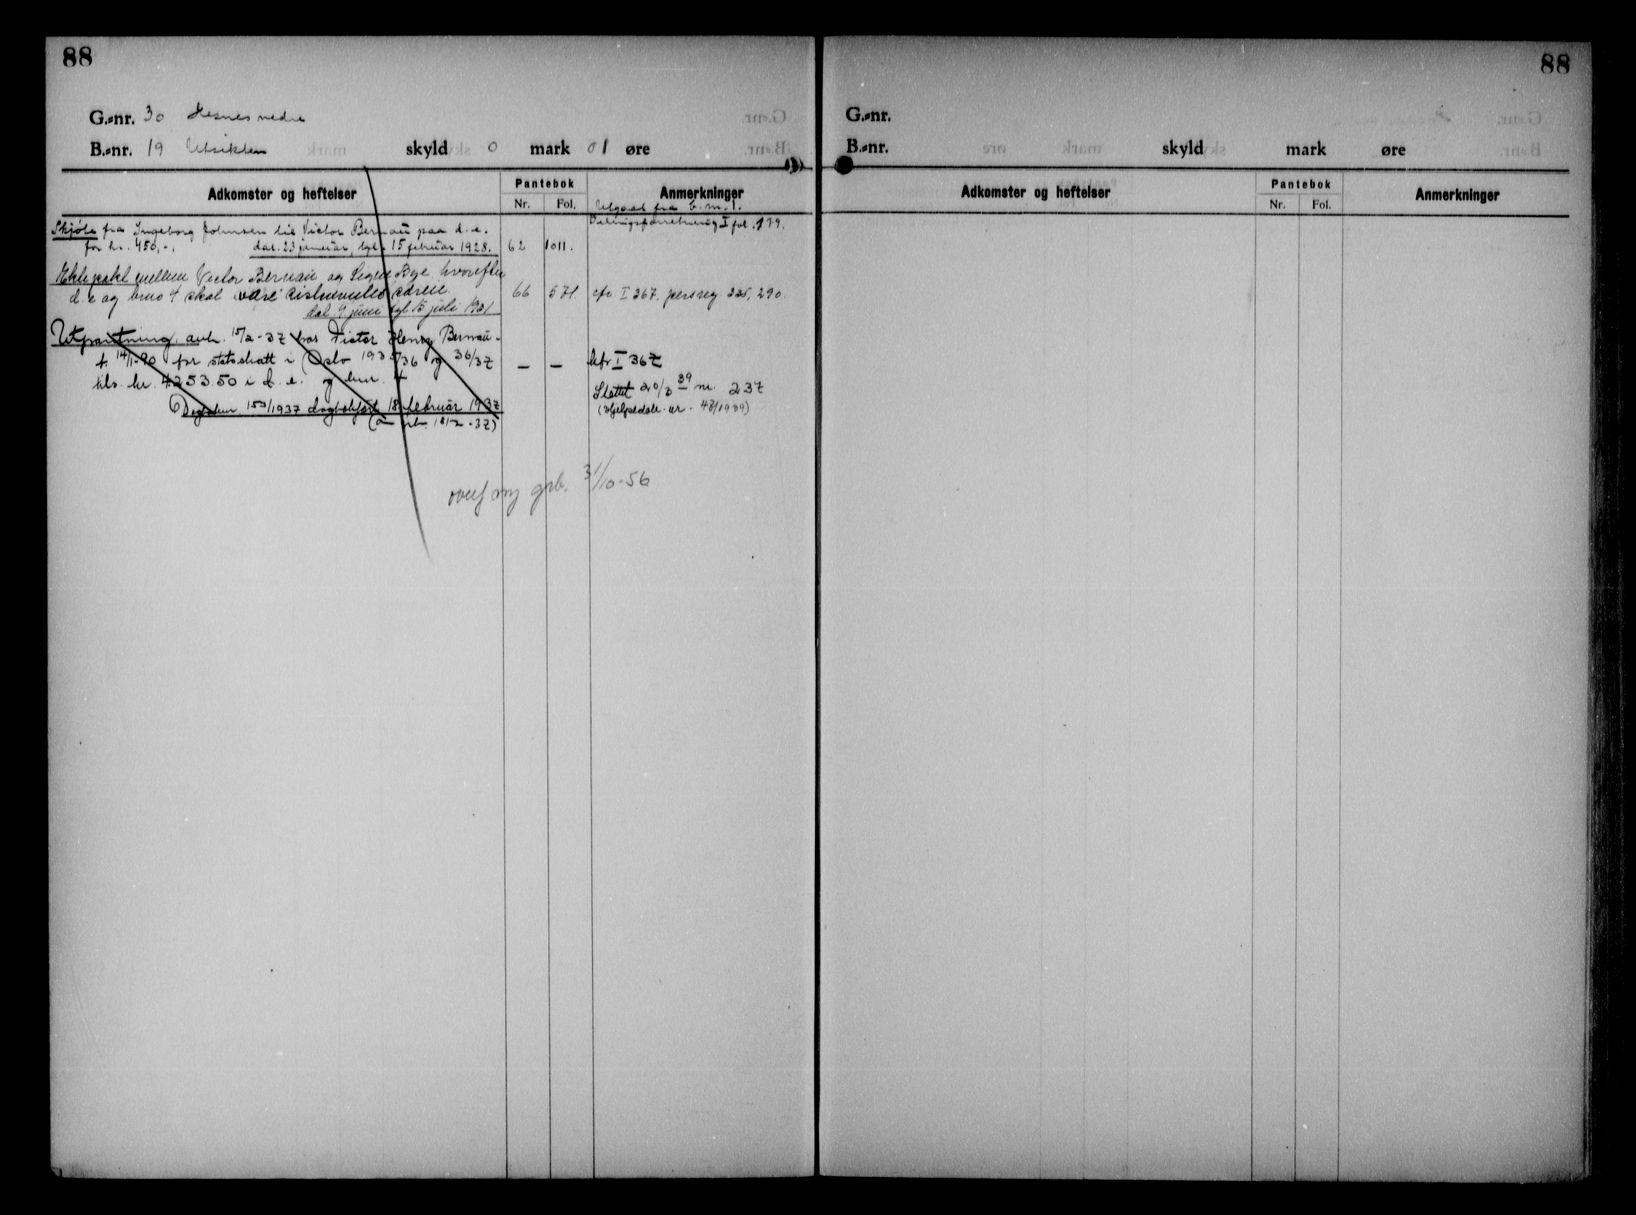 88
G.-nr. 30 Hesnes nedre
B.-nr. 19 Utsikten skyld 0 mark 01 øre
Adkomster og heftelser Pantebok Anmerkninger
Nr. Fol.
Utgaat fra b.nr. 1.
Skjøte fra Ingeborg Johnsen til Victor Bernau paa d.e. I fol. 179.
for kr. 450,-. dat. 23 januar, tgl. 15 februar 1928. 62 1011.
Ektepakt mellem Victor Bernau og Signe Bye hvorefter
d.e og bruo 4 skal være sidstnevntes særeie. 66 571 cfr. I 367. pers.reg 225, 290.
dat 9 juni tgl 15 juli 1931
Utpantning, avh. 15/2-37 hos Victor Henry Bernau -
f. 14/1-90 for statsskatt i Oslo 1935/36 og 36/37 — — kfr I 367
tils. kr. 4253.50 i d.e. og bnr. 4 Slettet 20/3 39 nr. 237
Dagboknr 153/1937 dagbokført 18 februar 1937 (Hjelpedok. nr. 48/1939)
overf ny grb. 31/10-56
88
G.-nr.
B.-nr. skyld mark øre
Adkomster og heftelser Pantebok Anmerkninger
Nr. Fol.